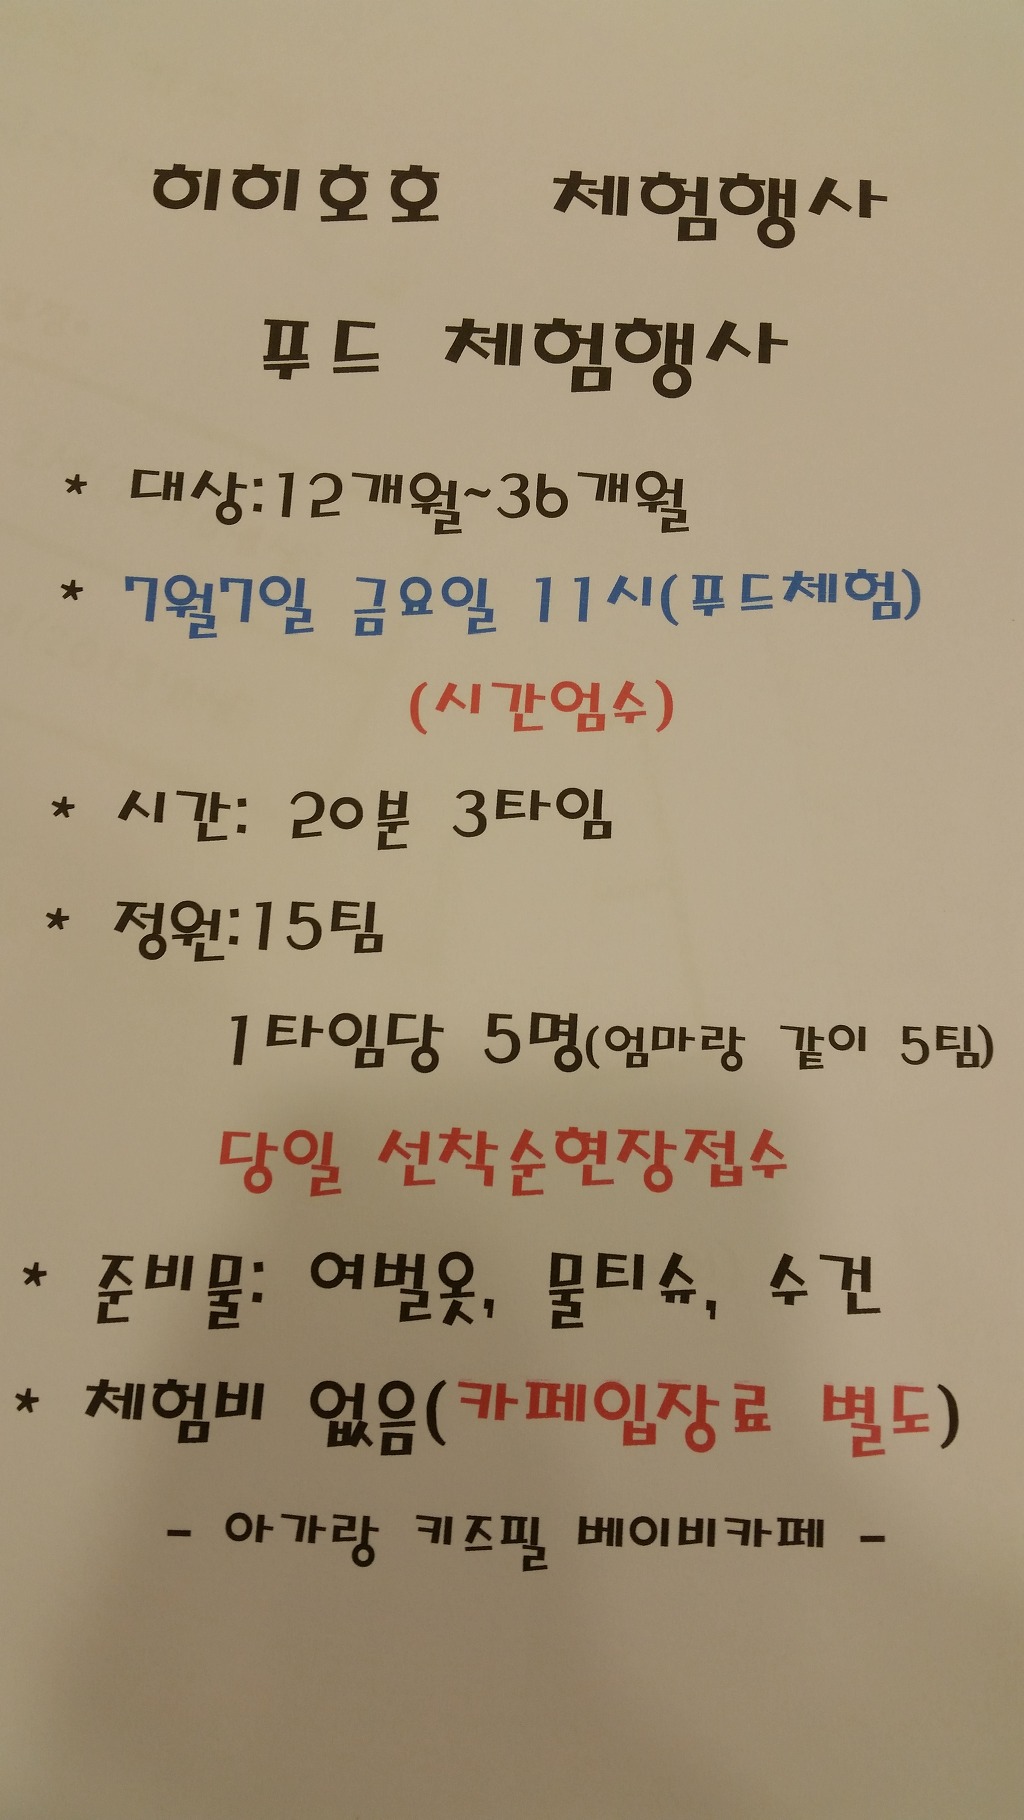 히히호호 체험행사
푸드 체험행사
* 대상:12개월~36개월
* 7월7일 금요일 11시(푸드체험)
(시간엄수)
* 시간: 20분 3타임
* 정원:15팀
1타임당 5명(엄마랑 같이 5팀)
당일 선착순현장접수
* 준비물: 여벌옷, 물티슈, 수건
* 체험비 없음(카페입장료 별도)
- 아가랑 키즈필 베이비카페 -